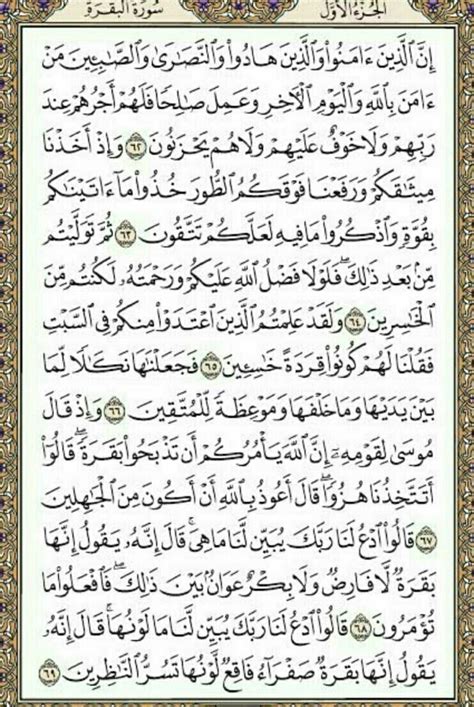 الجزء الأوّل سورة البقرة
إِنَّ ٱلَّذِينَ ءَامَنُوا۟ وَٱلَّذِينَ هَادُوا۟ وَٱلنَّصَـٰرَىٰ وَٱلصَّـٰبِـِٔينَ مَنْ
ءَامَنَ بِٱللَّهِ وَٱلْيَوْمِ ٱلْـَٔاخِرِ وَعَمِلَ صَـٰلِحًا فَلَهُمْ أَجْرُهُمْ عِندَ
رَبِّهِمْ وَلَا خَوْفٌ عَلَيْهِمْ وَلَا هُمْ يَحْزَنُونَ ٦٢ وَإِذْ أَخَذْنَا
مِيثَـٰقَكُمْ وَرَفَعْنَا فَوْقَكُمُ ٱلطُّورَ خُذُوا۟ مَآ ءَاتَيْنَـٰكُم
بِقُوَّةٍ وَٱذْكُرُوا۟ مَا فِيهِ لَعَلَّكُمْ تَتَّقُونَ ٦٣ ثُمَّ تَوَلَّيْتُم
مِّنۢ بَعْدِ ذَٰلِكَ ۖ فَلَوْلَا فَضْلُ ٱللَّهِ عَلَيْكُمْ وَرَحْمَتُهُۥ لَكُنتُم مِّنَ
ٱلْخَـٰسِرِينَ ٦٤ وَلَقَدْ عَلِمْتُمُ ٱلَّذِينَ ٱعْتَدَوْا۟ مِنكُمْ فِى ٱلسَّبْتِ
فَقُلْنَا لَهُمْ كُونُوا۟ قِرَدَةً خَـٰسِـِٔينَ ٦٥ فَجَعَلْنَـٰهَا نَكَـٰلًا لِّمَا
بَيْنَ يَدَيْهَا وَمَا خَلْفَهَا وَمَوْعِظَةً لِّلْمُتَّقِينَ ٦٦ وَإِذْ قَالَ
مُوسَىٰ لِقَوْمِهِۦٓ إِنَّ ٱللَّهَ يَأْمُرُكُمْ أَن تَذْبَحُوا۟ بَقَرَةً ۖ قَالُوٓا۟
أَتَتَّخِذُنَا هُزُوًا ۖ قَالَ أَعُوذُ بِٱللَّهِ أَنْ أَكُونَ مِنَ ٱلْجَـٰهِلِينَ
٦٧ قَالُوا۟ ٱدْعُ لَنَا رَبَّكَ يُبَيِّن لَّنَا مَا هِىَ ۚ قَالَ إِنَّهُۥ يَقُولُ إِنَّهَا
بَقَرَةٌ لَّا فَارِضٌ وَلَا بِكْرٌ عَوَانٌۢ بَيْنَ ذَٰلِكَ ۖ فَٱفْعَلُوا۟ مَا
تُؤْمَرُونَ ٦٨ قَالُوا۟ ٱدْعُ لَنَا رَبَّكَ يُبَيِّن لَّنَا مَا لَوْنُهَا ۚ قَالَ إِنَّهُۥ
يَقُولُ إِنَّهَا بَقَرَةٌ صَفْرَآءُ فَاقِعٌ لَّوْنُهَا تَسُرُّ ٱلنَّـٰظِرِينَ ٦٩